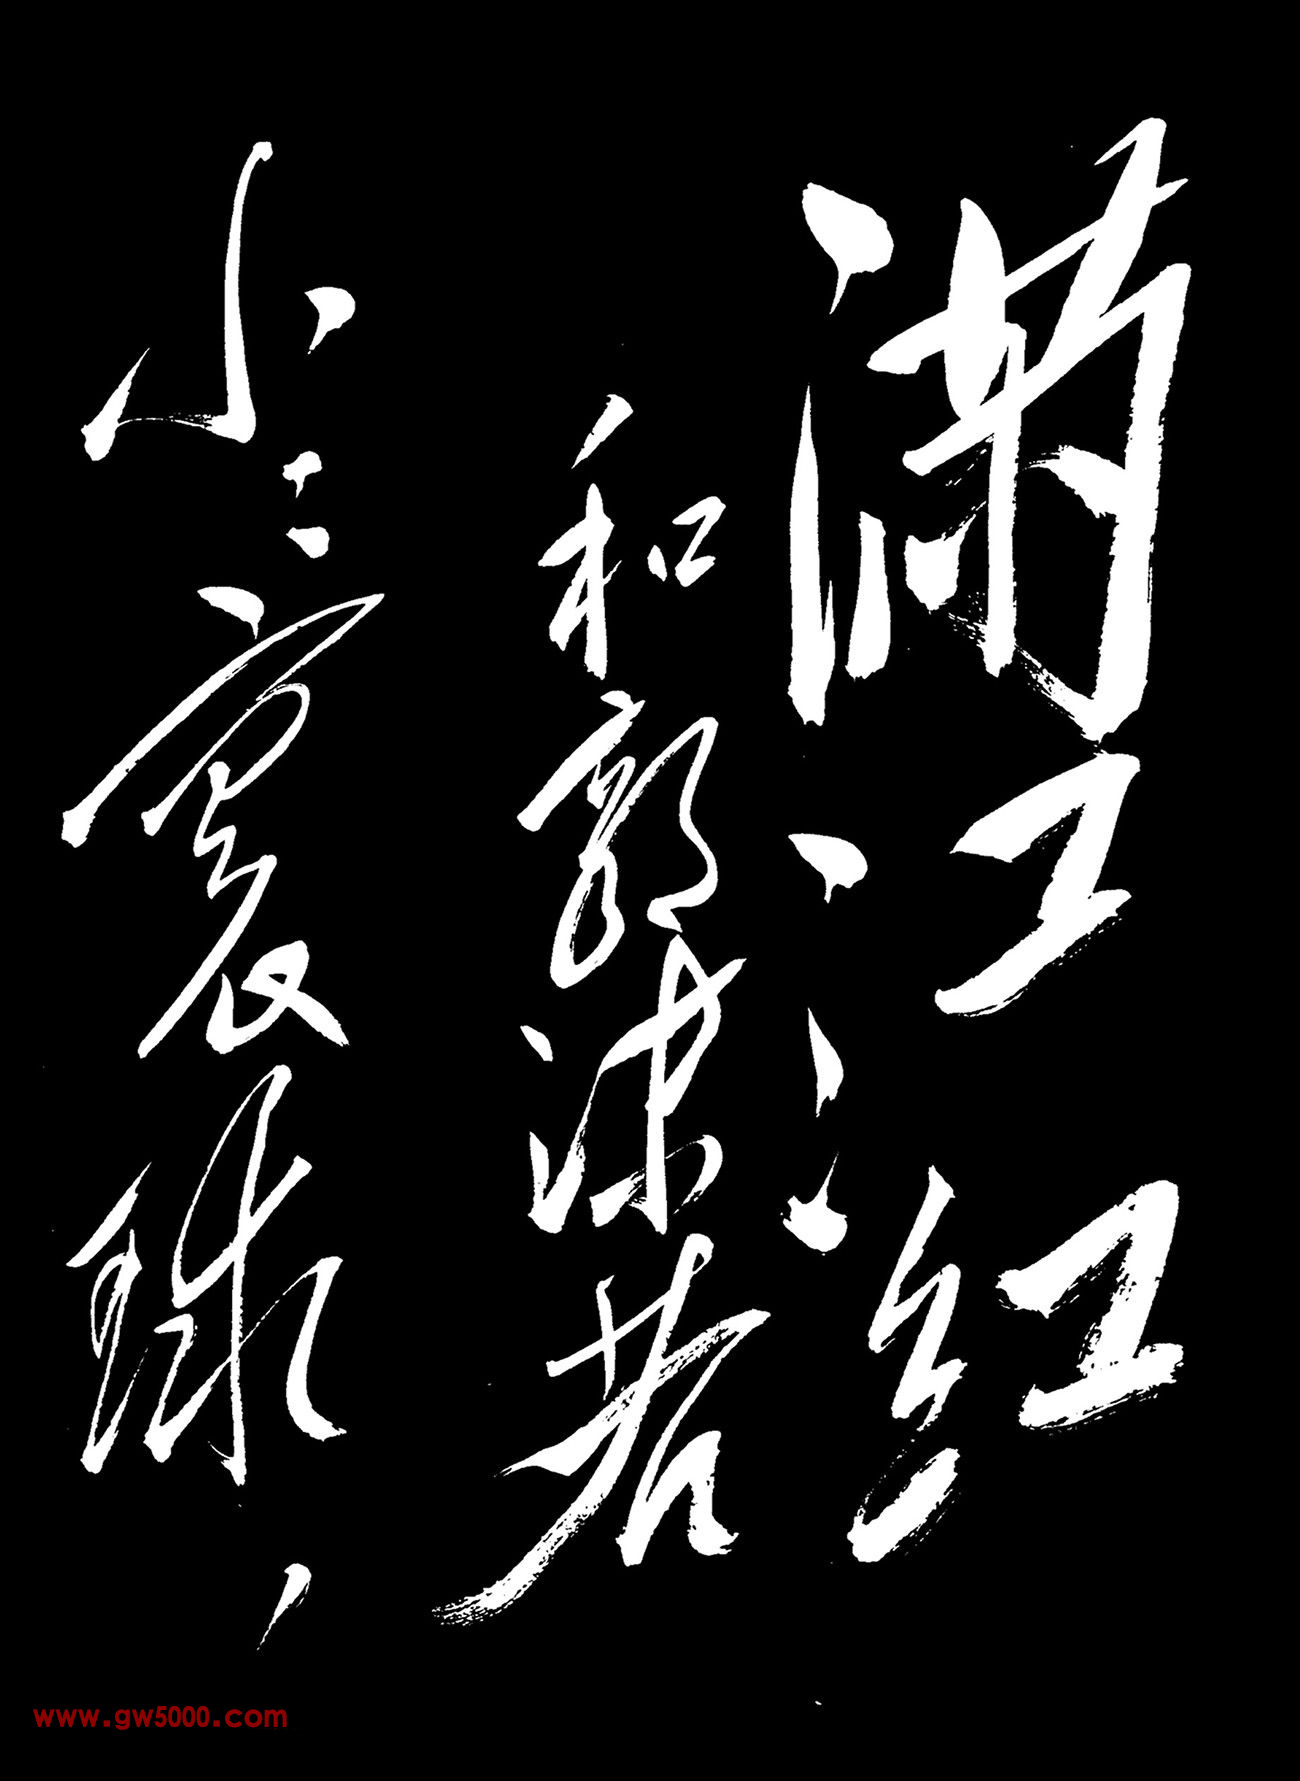 满江红
和郭沫若
小小寰球，
www.gw5000.com